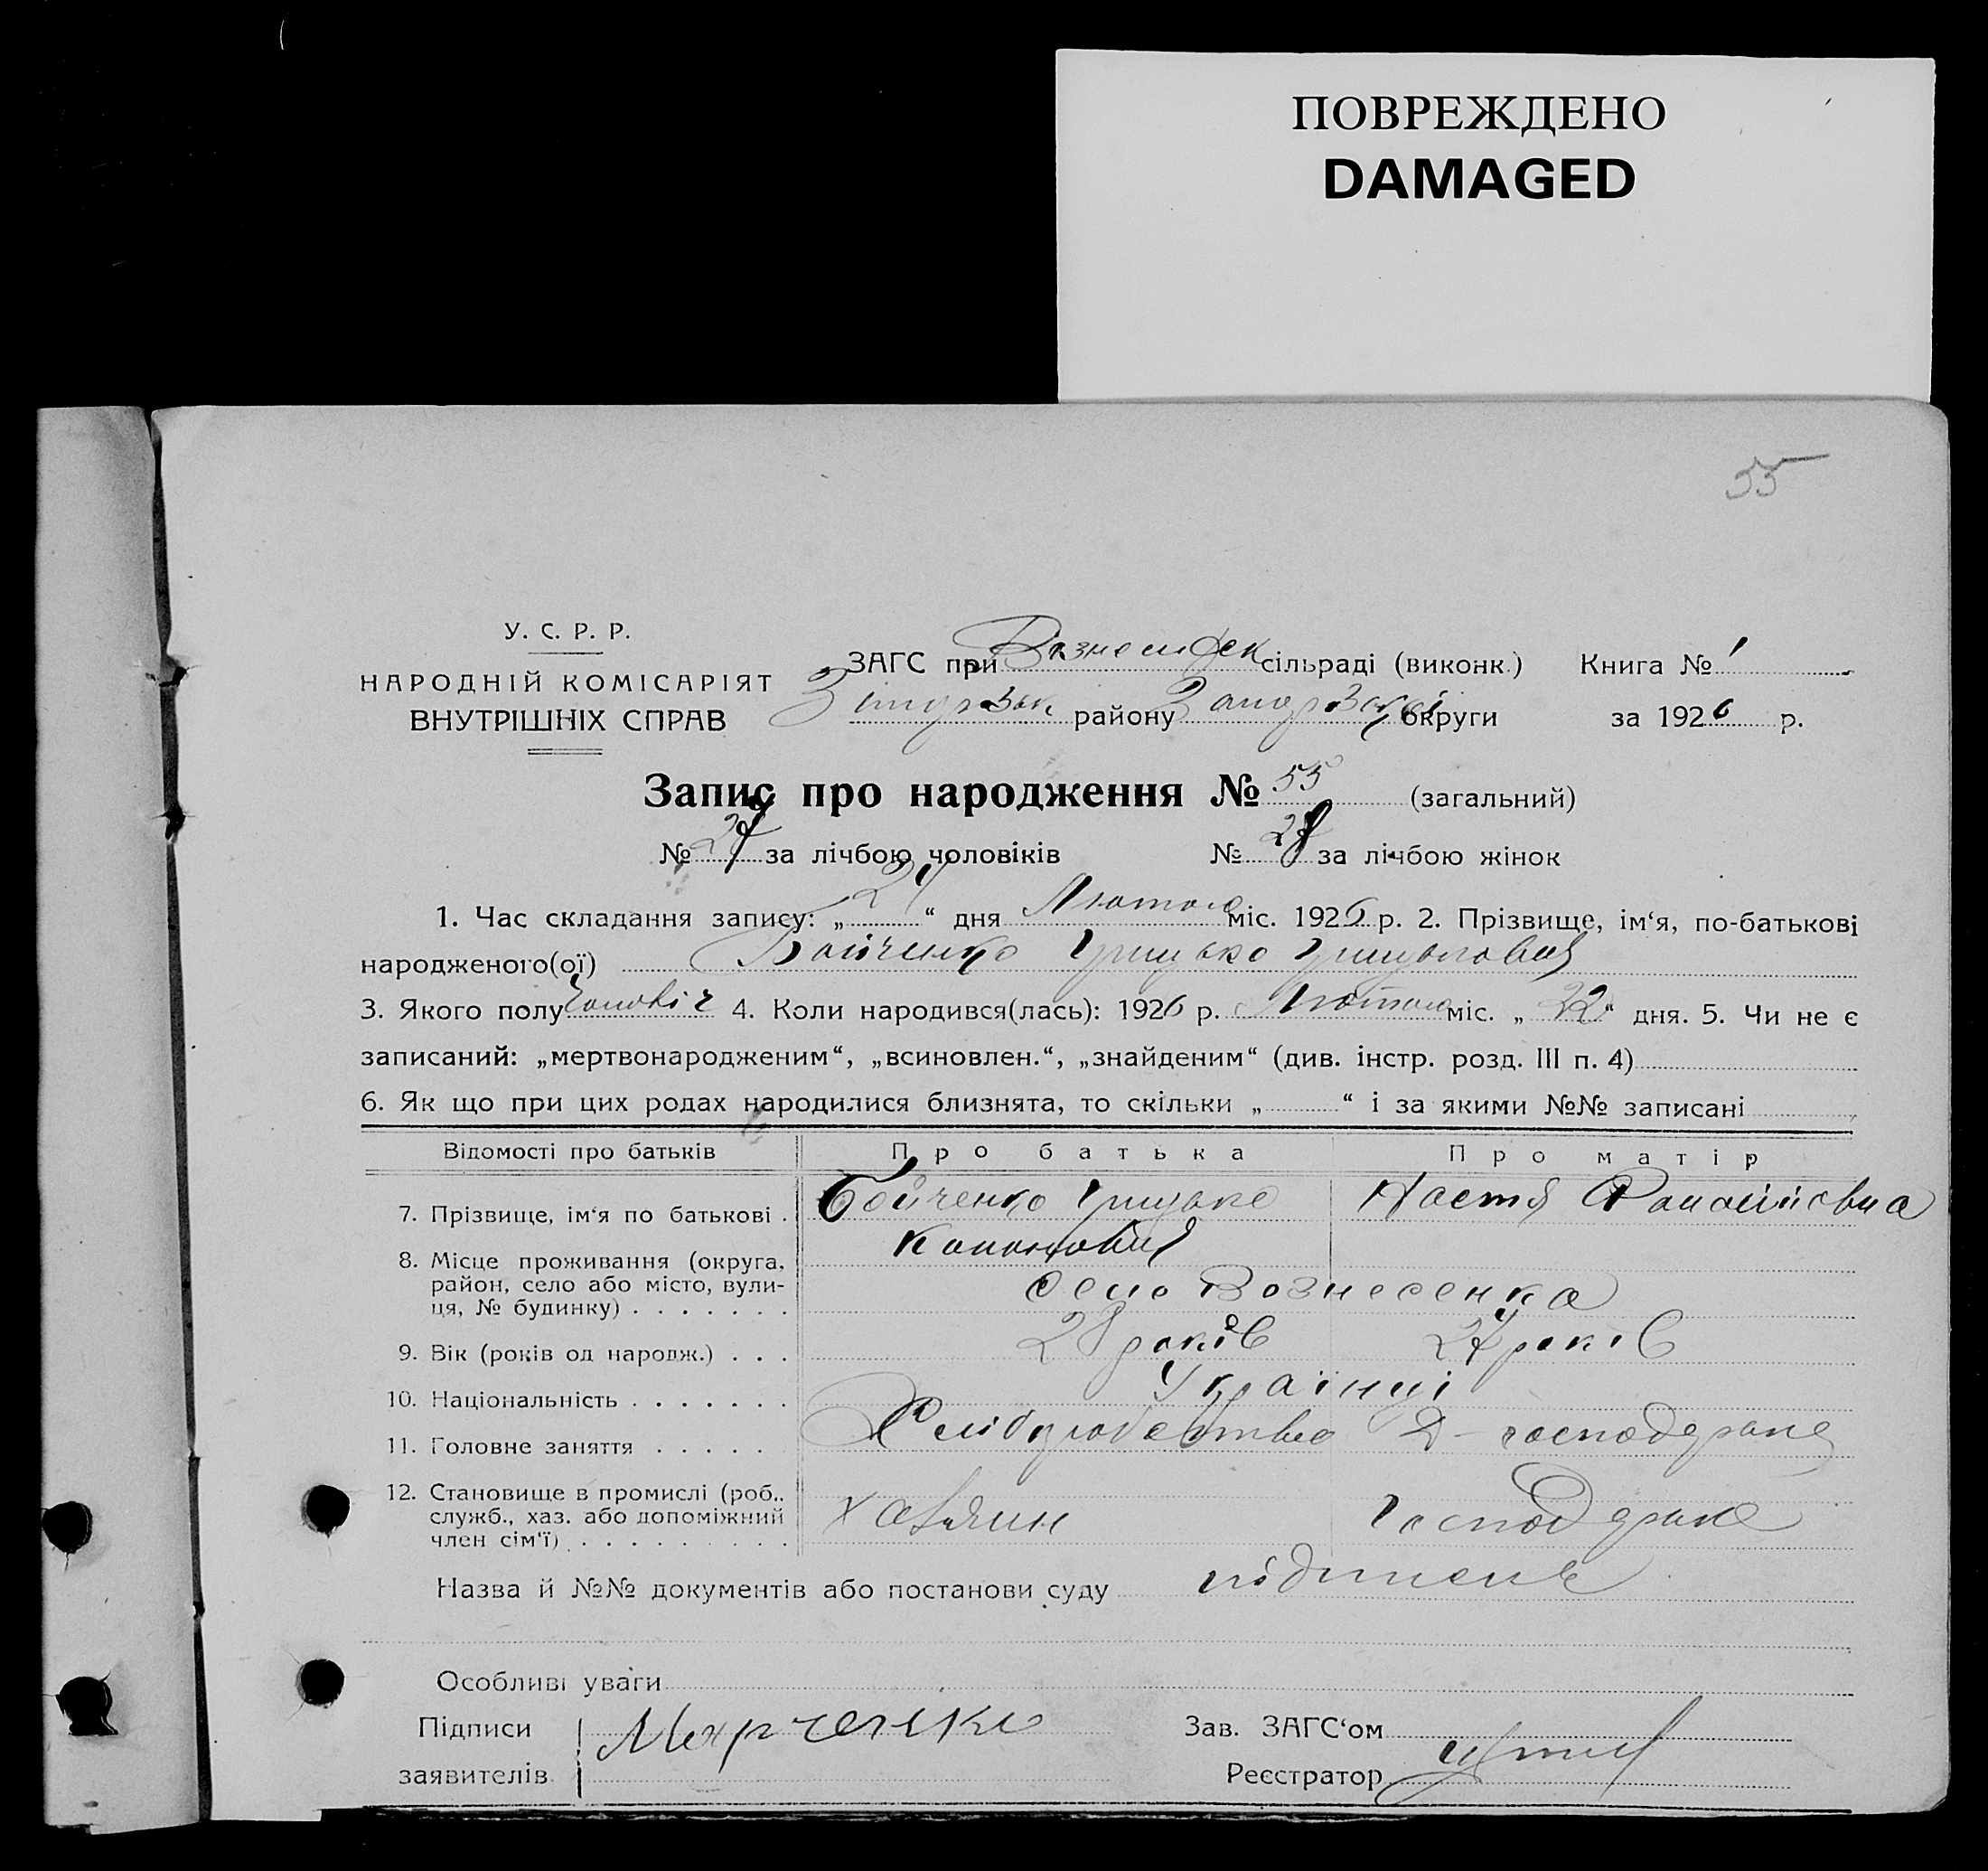 ПОВРЕЖДЕНО
DAMAGED
55
У. С. Р. Р.
НАРОДНІЙ КОМІСАРІЯТ
ВНУТРІШНІХ СПРАВ
ЗАГС при сільраді (виконк.) Книга № 1
району округи за 1926 р.
Запис про народження № 55 (загальний)
№ за лічбою чоловіків № за лічбою жінок
1. Час складання запису: „24“ дня Лютого міс. 1926 р. 2. Прізвище, ім‘я, по-батькові
народженого(ої) Бойченко Грицько Грицькович
3. Якого полу Чоловіч 4. Коли народився(лась): 1926 р. Лютого міс. „22“ дня. 5. Чи не є
записаний: „мертвонародженим“, „всиновлен.“, „знайденим“ (див. інстр. розд. III п. 4)
6. Як що при цих родах народилися близнята, то скільки „ “ і за якими №№ записані
Відомості про батьків Про батька Про матір
7. Прізвище, ім‘я по батькові . Бойченко Грицько Настя Панасівна
Кононович
8. Місце проживання (округа,
район, село або місто, вули-
ця, № будинку) . . . . . . . село Вознесенка
9. Вік (років од народж.) . . . 28 років 27 років
10. Національність . . . . . . . Українці
11. Головне заняття . . . . . Хліборобство Д-господарка
12. Становище в промислі (роб.,
служб., хаз. або допоміжний
член сім‘ї) . . . . . . . . . хазяин господарка
Назва й №№ документів або постанови суду
Особливі уваги
Підписи Марченко Зав. ЗАГС‘ом
заявителів Реєстратор